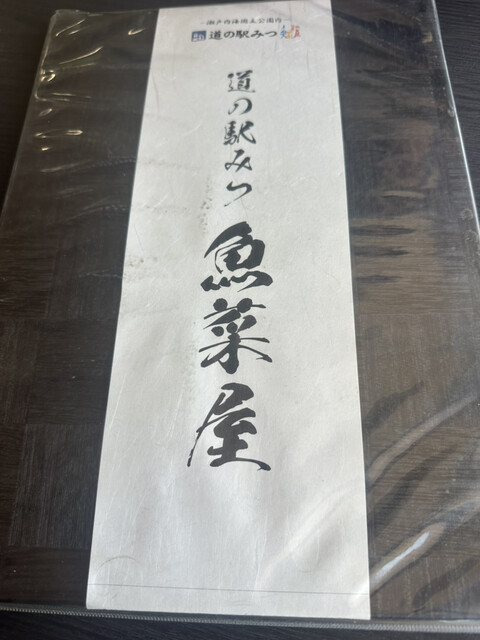 瀬戸内海国立公園内
道の駅みつ
道の駅みつ
魚菜屋